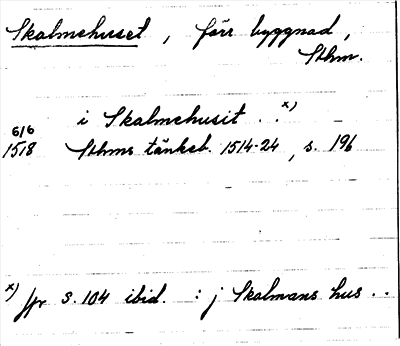 Skalmehuset, förr byggnad,
Sthm.
i Skalmehusit . . x)
6/6
1518 Sthms tänkeb. 1514-24, s. 196
x) jfr s. 104 ibid. : j Skalmans hus . .